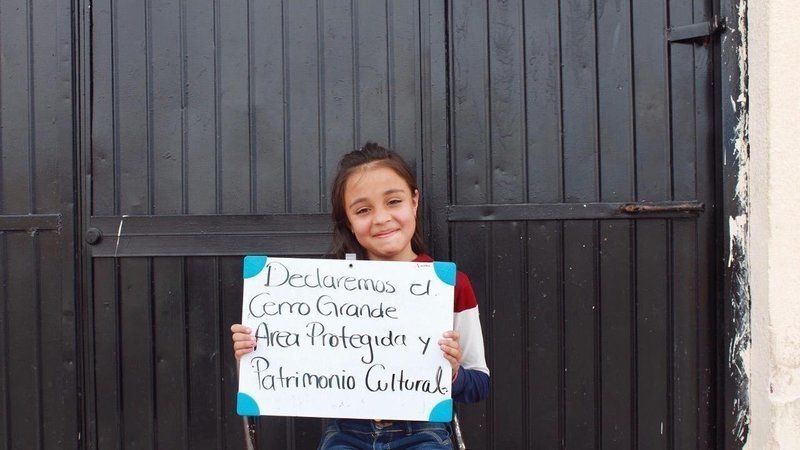 Declaremos el
Cerro Grande
Area Protegida y
Patrimonio Cultural.